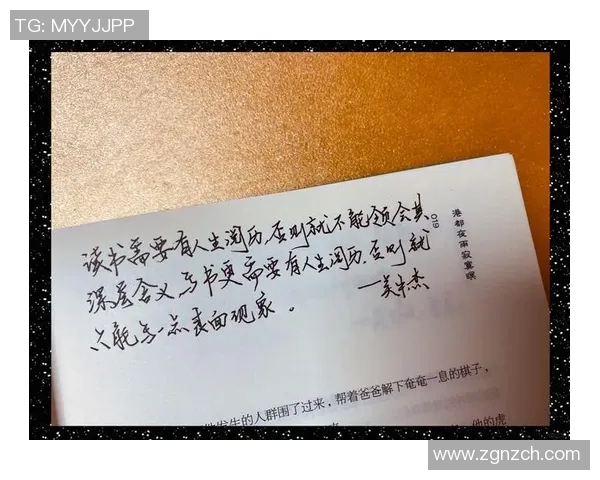 TG: MYYJJPP
读书需要有人生阅历,否则就不能领会其
深层含义,写书更需要有人生阅历,否则就
只能写一点表面现象。
港都夜雨寂寞暝
019
发生的人群围了过来,帮着爸爸解下奄奄一息的棋子,
他的虎
www.zgnzch.com